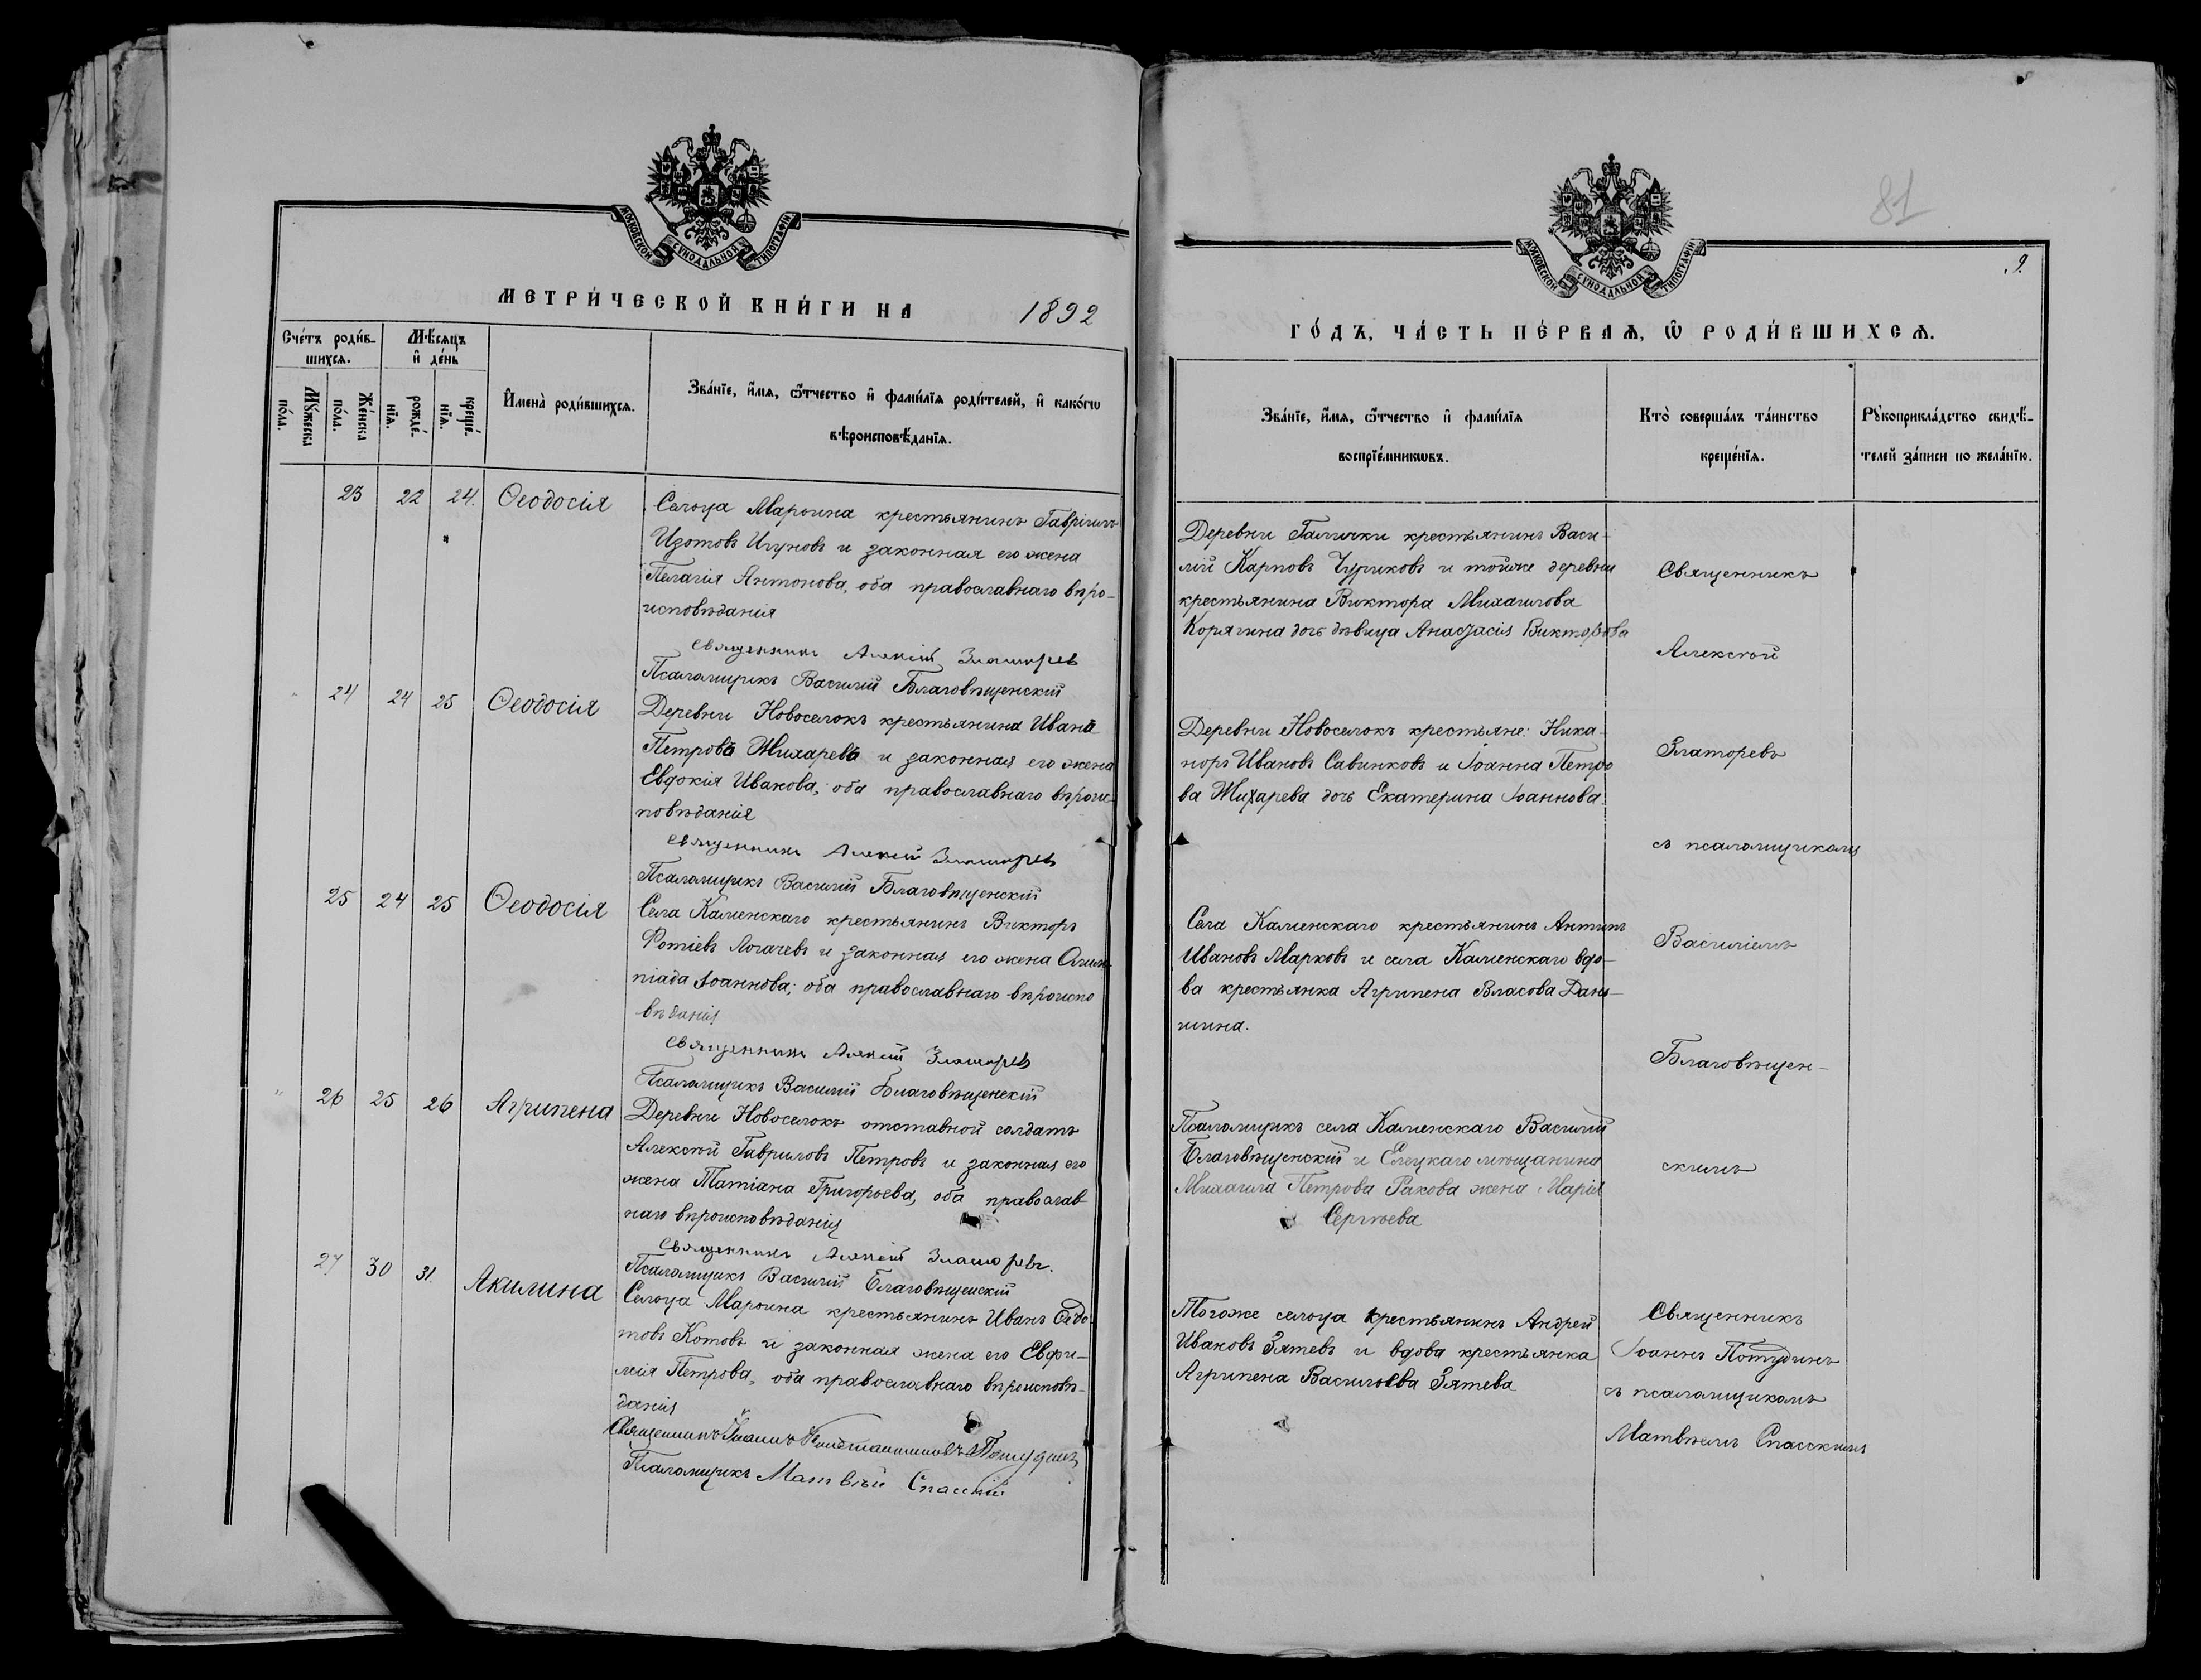 МОСКОВСКОЙ СѴНОДАЛЬНОЙ ТИПОГРАФІИ
МЕТРИ́ЧЕСКОЙ КНИ́ГИ НА 1892
Сче́тъ роди́в-
шихся.
Мꙋ́жеска
по́ла.
Же́нска
по́ла.
Мѣ́сяцъ
и҆ де́нь
рожде́-
нїѧ.
креще́-
нїѧ.
И҆мена̀ роди́вшихсѧ.
Зва́нїе, и҆́мѧ, ѻ҆́тчество и҆ фами́лїѧ роди́телей, и҆ како́гѡ
вѣроисповѣ́данїѧ.
23 22 24. Ѳеодосія
Сельца Марьина крестьянинъ Гавріилъ
Изотовъ Игуновъ и законная его жена
Пелагія Антонова, оба православнаго вѣро-
исповѣданія
Священникъ Алексій Златоревъ
Псаломщикъ Василій Благовѣщенскій
24 24 25 Ѳеодосія
Деревни Новоселокъ крестьянина Ивана
Петрова Жихарева и законная его жена
Евдокія Иванова; оба православнаго вѣроис-
повѣданія
Священникъ Алексій Златоревъ
Псаломщикъ Василій Благовѣщенскій
25 24 25 Ѳеодосія
Села Каменскаго крестьянинъ Викторъ
Фотіевъ Логачевъ и законная его жена Олим-
піада Іоаннова; оба православнаго вѣроиспо
вѣданія
Священникъ Алексій Златоревъ
Псаломщикъ Василій Благовѣщенскій
26 25 26 Агрипена
Деревни Новоселокъ отставной солдатъ
Алексѣй Гавриловъ Петровъ и законная его
жена Татіана Григорьева, оба православ
наго вѣроисповѣданія
Священникъ Алексій Златоревъ.
Псаломщикъ Василій Благовѣщенскій
27 30 31. Акилина
Сельца Марьина крестьянинъ Иванъ Ѳедо
товъ Котовъ и законная жена его Евфи-
мія Петрова, оба православнаго вѣроисповѣ-
данія
Священникъ Іоаннъ Константиновъ Потудинъ
Псаломщикъ Матвѣй Спасскій
81
МОСКОВСКОЙ СѴНОДАЛЬНОЙ ТИПОГРАФІИ
9.
ГО́ДЪ, ЧА́СТЬ ПЕ́РВАѦ, Ѽ РОДИ́ВШИХСѦ.
Зва́нїе, и҆́мѧ, ѻ҆́тчество и҆ фами́лїѧ
воспрїе́мникѡвъ.
Кто̀ соверша́лъ та́инство
креще́нїѧ.
Рꙋкоприкла́дство свидѣ́-
телей за́писи по жела́нїю.
Деревни Галички крестьянинъ Васи-
лій Карповъ Чуриковъ и тойже деревни
крестьянина Виктора Михаилова
Корягина дочь дѣвица Анастасія Викторова
Деревни Новоселокъ крестьяне: Ника-
норъ Ивановъ Савинковъ и Іоанна Петро
ва Жихарева дочь Екатерина Іоаннова
Села Каменскаго крестьянинъ Антипъ
Ивановъ Марковъ и села Каменскаго вдо-
ва крестьянка Агрипена Власова Дань-
шина.
Псаломщикъ села Каменскаго Василій
Благовѣщенскій и Елецкаго мѣщанина
Михаила Петрова Ракова жена Марія
Сергѣева
Тогоже сельца крестьянинъ Андрей
Ивановъ Зятевъ и вдова крестьянка
Агрипена Васильева Зятева
Священникъ
Алексѣй
Златоревъ
съ псаломщикомъ
Василіемъ
Благовѣщен-
скимъ
Священникъ
Іоаннъ Потудинъ
съ псаломщикомъ
Матвѣемъ Спасскимъ